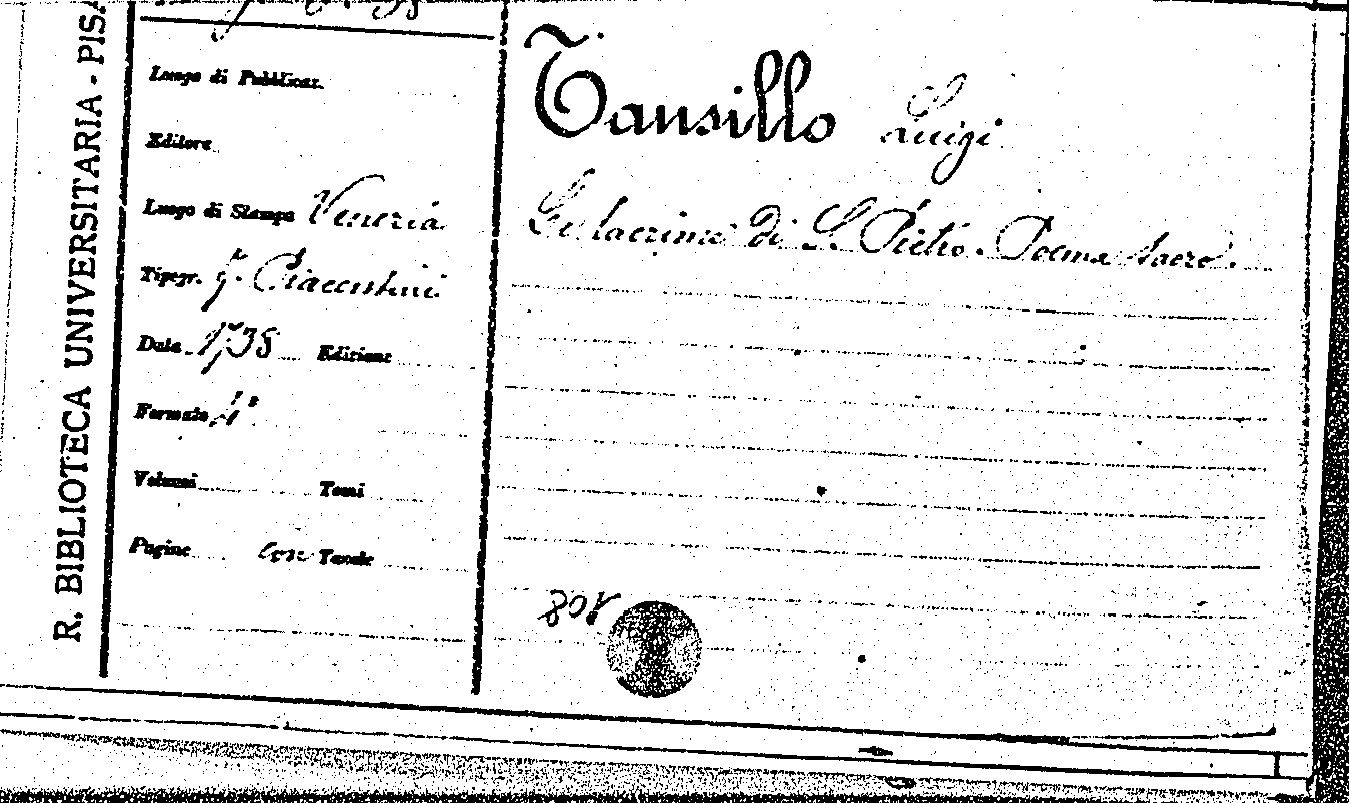 R. BIBLIOTECA UNIVERSITARIA - PISA
Luogo di Pubblicaz.
Editore
Luogo di Stampa Venezia
Tipogr. F. Piacentini
Data 1738 Edizione
Formato 4°
Volumi Tomi
Pagine con Tavole
Tansillo Luigi
Le lacrime di S. Pietro. Poema sacro.
808